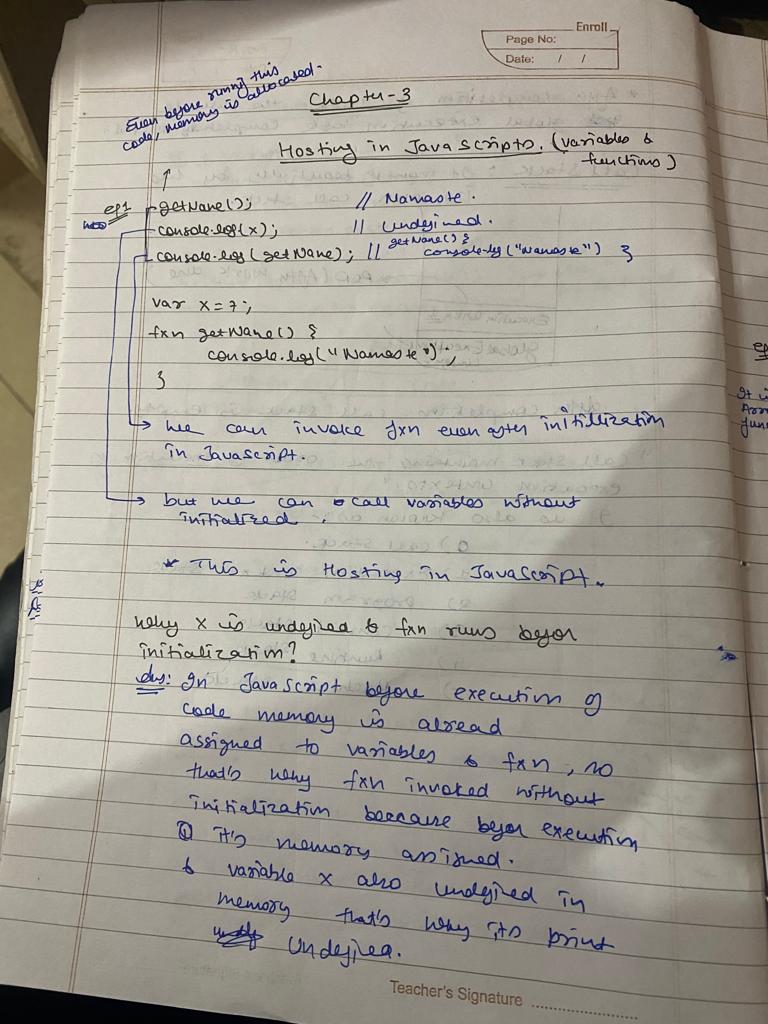 Enroll
Page No:
Date: / /
Even before running this
code, memory is allocated.
Chapter-3
Hosting in JavaScripts. (variables &
functions)
eg1
getName(); // Namaste.
console.log(x); // Undefined.
console.log(getName); // getName() {
console.log("Namaste") }
var x = 7;
fxn getName() {
console.log("Namaste");
}
→ we can invoke fxn even after initillization
in JavaScript.
→ but we can call variables without
initialized.
* This is Hosting in JavaScript.
why x is undefined & fxn runs befor
initialization?
Ans: In JavaScript before execution of
code memory is alread
assigned to variables & fxn, so
that's why fxn invoked without
initialization beccause befor execution
it's memory assined.
& variable x also undefined in
memory that's why its print
Undefined.
Teacher's Signature